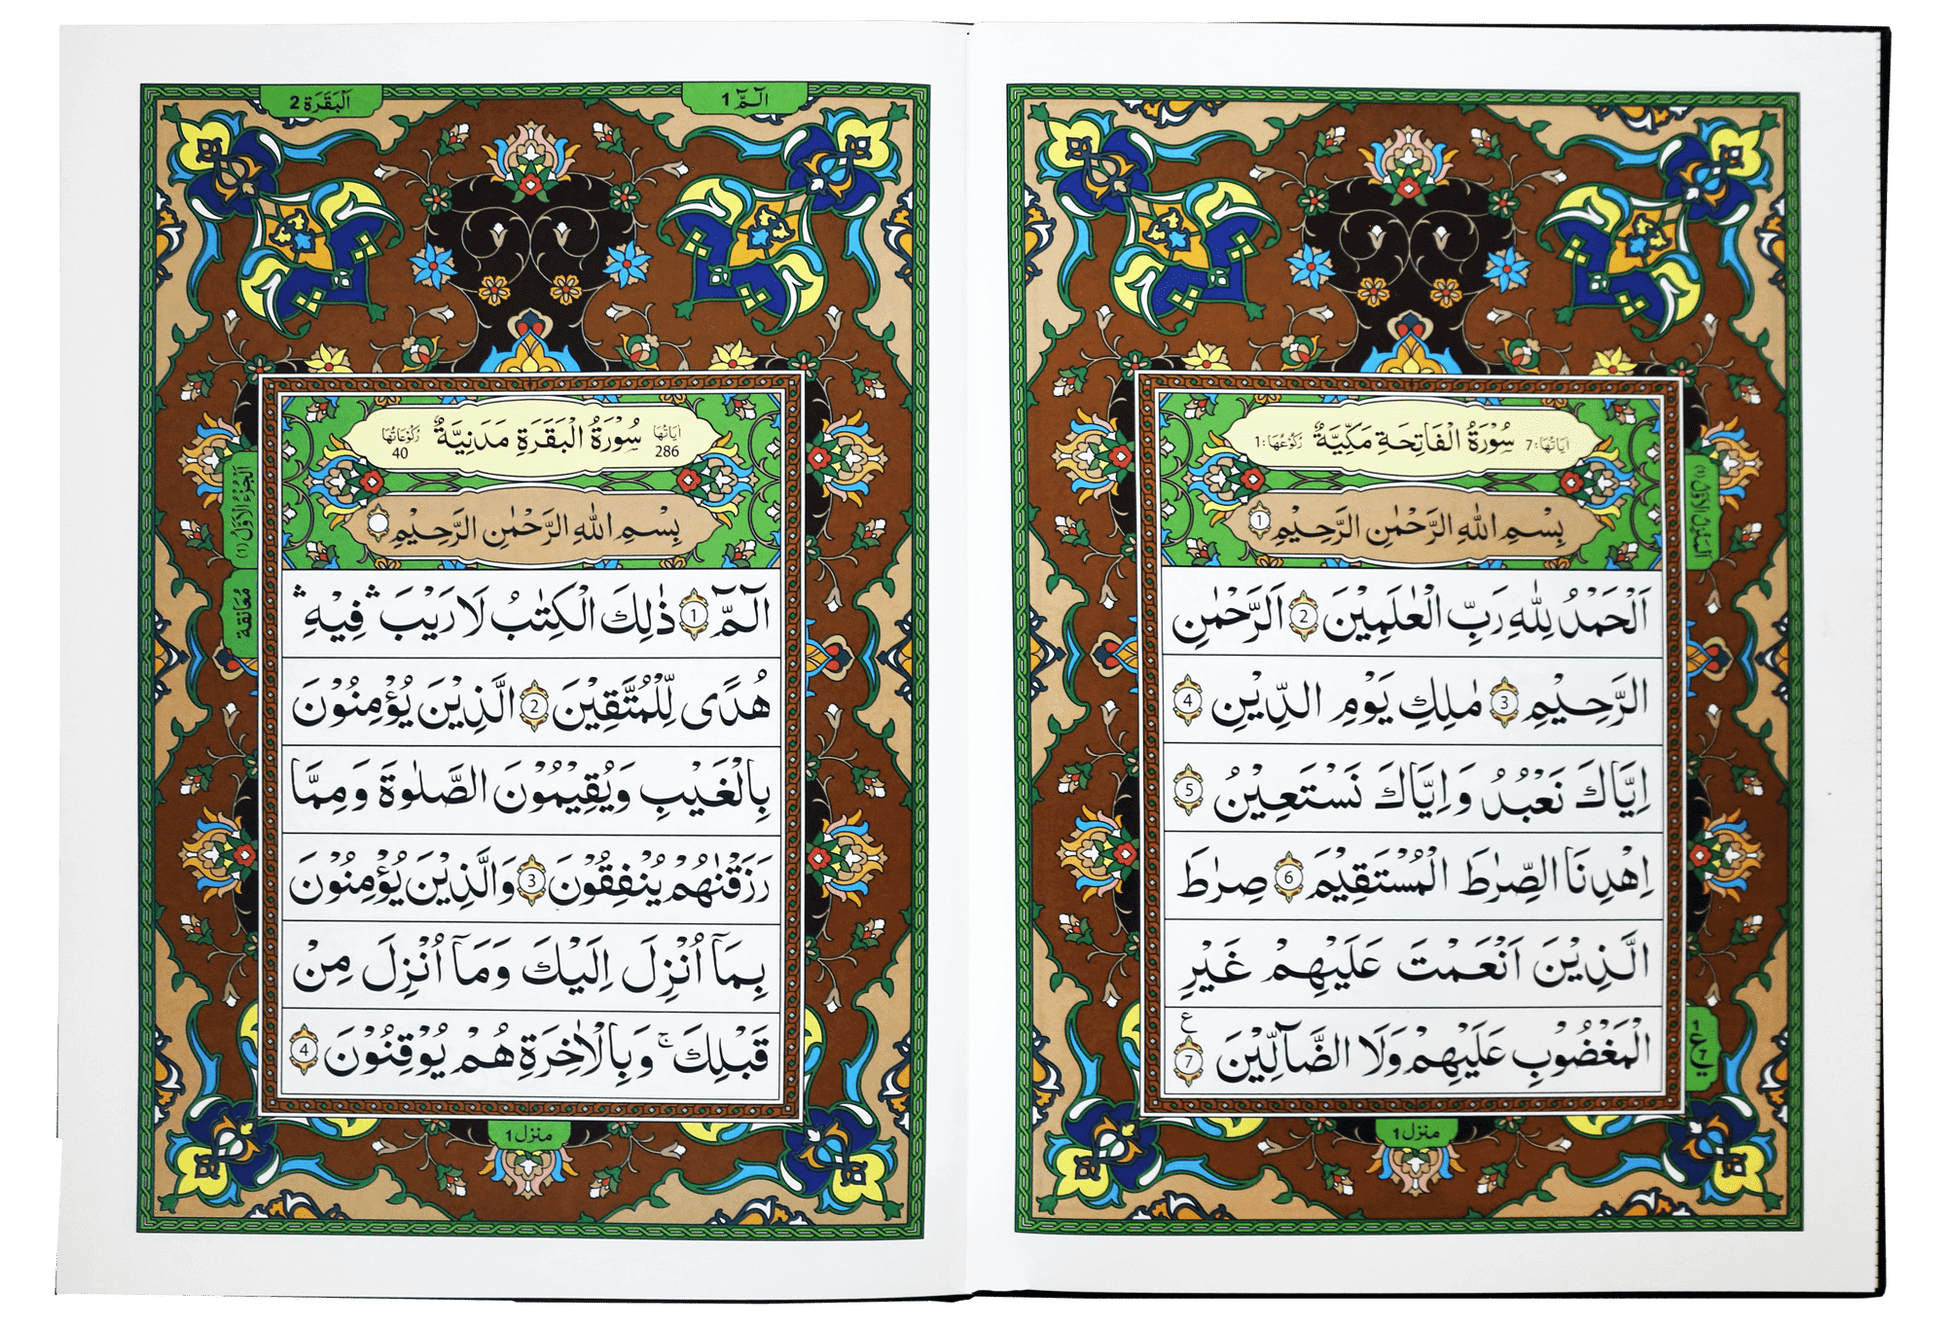 اٰيَاتُهَا: 7 سُوْرَةُ الْفَاتِحَةِ مَكِّيَّةٌ رُكُوْعُهَا: 1
بِسْمِ اللهِ الرَّحْمٰنِ الرَّحِيْمِ 1
اَلْحَمْدُ لِلّٰهِ رَبِّ الْعٰلَمِيْنَ 2 اَلرَّحْمٰنِ
الرَّحِيْمِ 3 مٰلِكِ يَوْمِ الدِّيْنِ 4
اِيَّاكَ نَعْبُدُ وَاِيَّاكَ نَسْتَعِيْنُ 5
اِهْدِنَا الصِّرٰطَ الْمُسْتَقِيْمَ 6 صِرٰطَ
الَّذِيْنَ اَنْعَمْتَ عَلَيْهِمْ غَيْرِ
الْمَغْضُوْبِ عَلَيْهِمْ وَلَا الضَّآلِّيْنَ 7 ع
1 ع 7
منزل 1
الٓمّٓ 1
اَلْبَقَرَة 2
اٰيَاتُهَا 286 سُوْرَةُ الْبَقَرَةِ مَدَنِيَّةٌ رُكُوْعَاتُهَا 40
بِسْمِ اللهِ الرَّحْمٰنِ الرَّحِيْمِ
الٓمّٓ 1 ذٰلِكَ الْكِتٰبُ لَا رَيْبَ ۛ فِيْهِ ۛ
هُدًى لِّلْمُتَّقِيْنَ 2 الَّذِيْنَ يُؤْمِنُوْنَ
بِالْغَيْبِ وَيُقِيْمُوْنَ الصَّلٰوةَ وَمِمَّا
رَزَقْنٰهُمْ يُنْفِقُوْنَ 3 وَالَّذِيْنَ يُؤْمِنُوْنَ
بِمَآ اُنْزِلَ اِلَيْكَ وَمَآ اُنْزِلَ مِنْ
قَبْلِكَ ۚ وَبِالْاٰخِرَةِ هُمْ يُوْقِنُوْنَ 4
اَلْجُزْءُ الْاَوَّلُ (1)
مُعَانَقَة
منزل 1